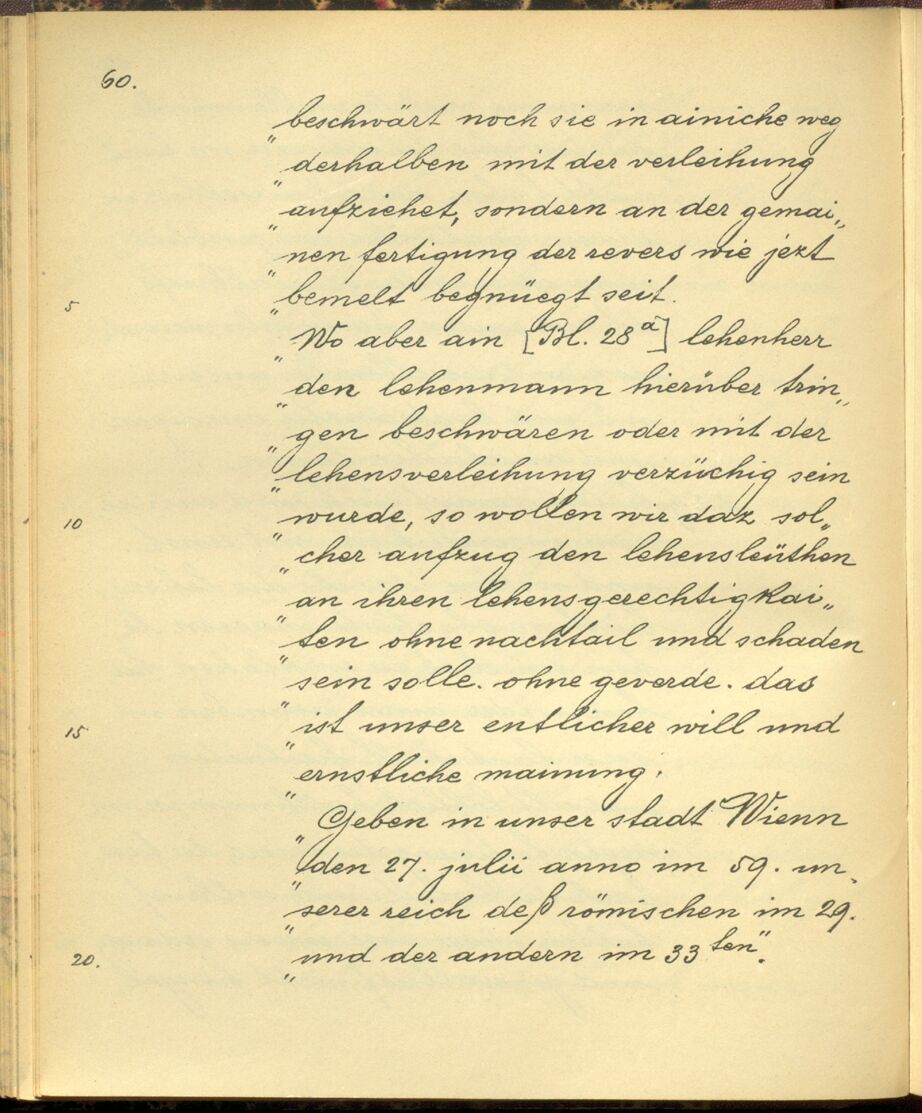 60.
beschwärt noch sie in ainiche weg
„ derhalben mit der verleihung
„ aufziehet, sondern an der gemai„
„ nen fertigung der revers wie jezt
5 „ bemelt begnüegt seit.
„ Wo aber ain [Bl. 28a] lehenherr
„ den lehenmann hierüber trin„
„ gen beschwären oder mit der
„ lehensverleihung verzüchig sein
10 „ wurde, so wollen wir daz sol„
„ cher aufzug den lehensleüthen
„ an ihren lehensgerechtigkai„
„ ten ohne nachtail und schaden
„ sein solle. ohne geverde. das
15 „ ist unser entlicher will und
„ ernstliche mainung.
„ Geben in unser stadt Wienn
„ den 27. julii anno im 59. un„
„ serer reich deß römischen im 29.
20. „ und der andern im 33ten".